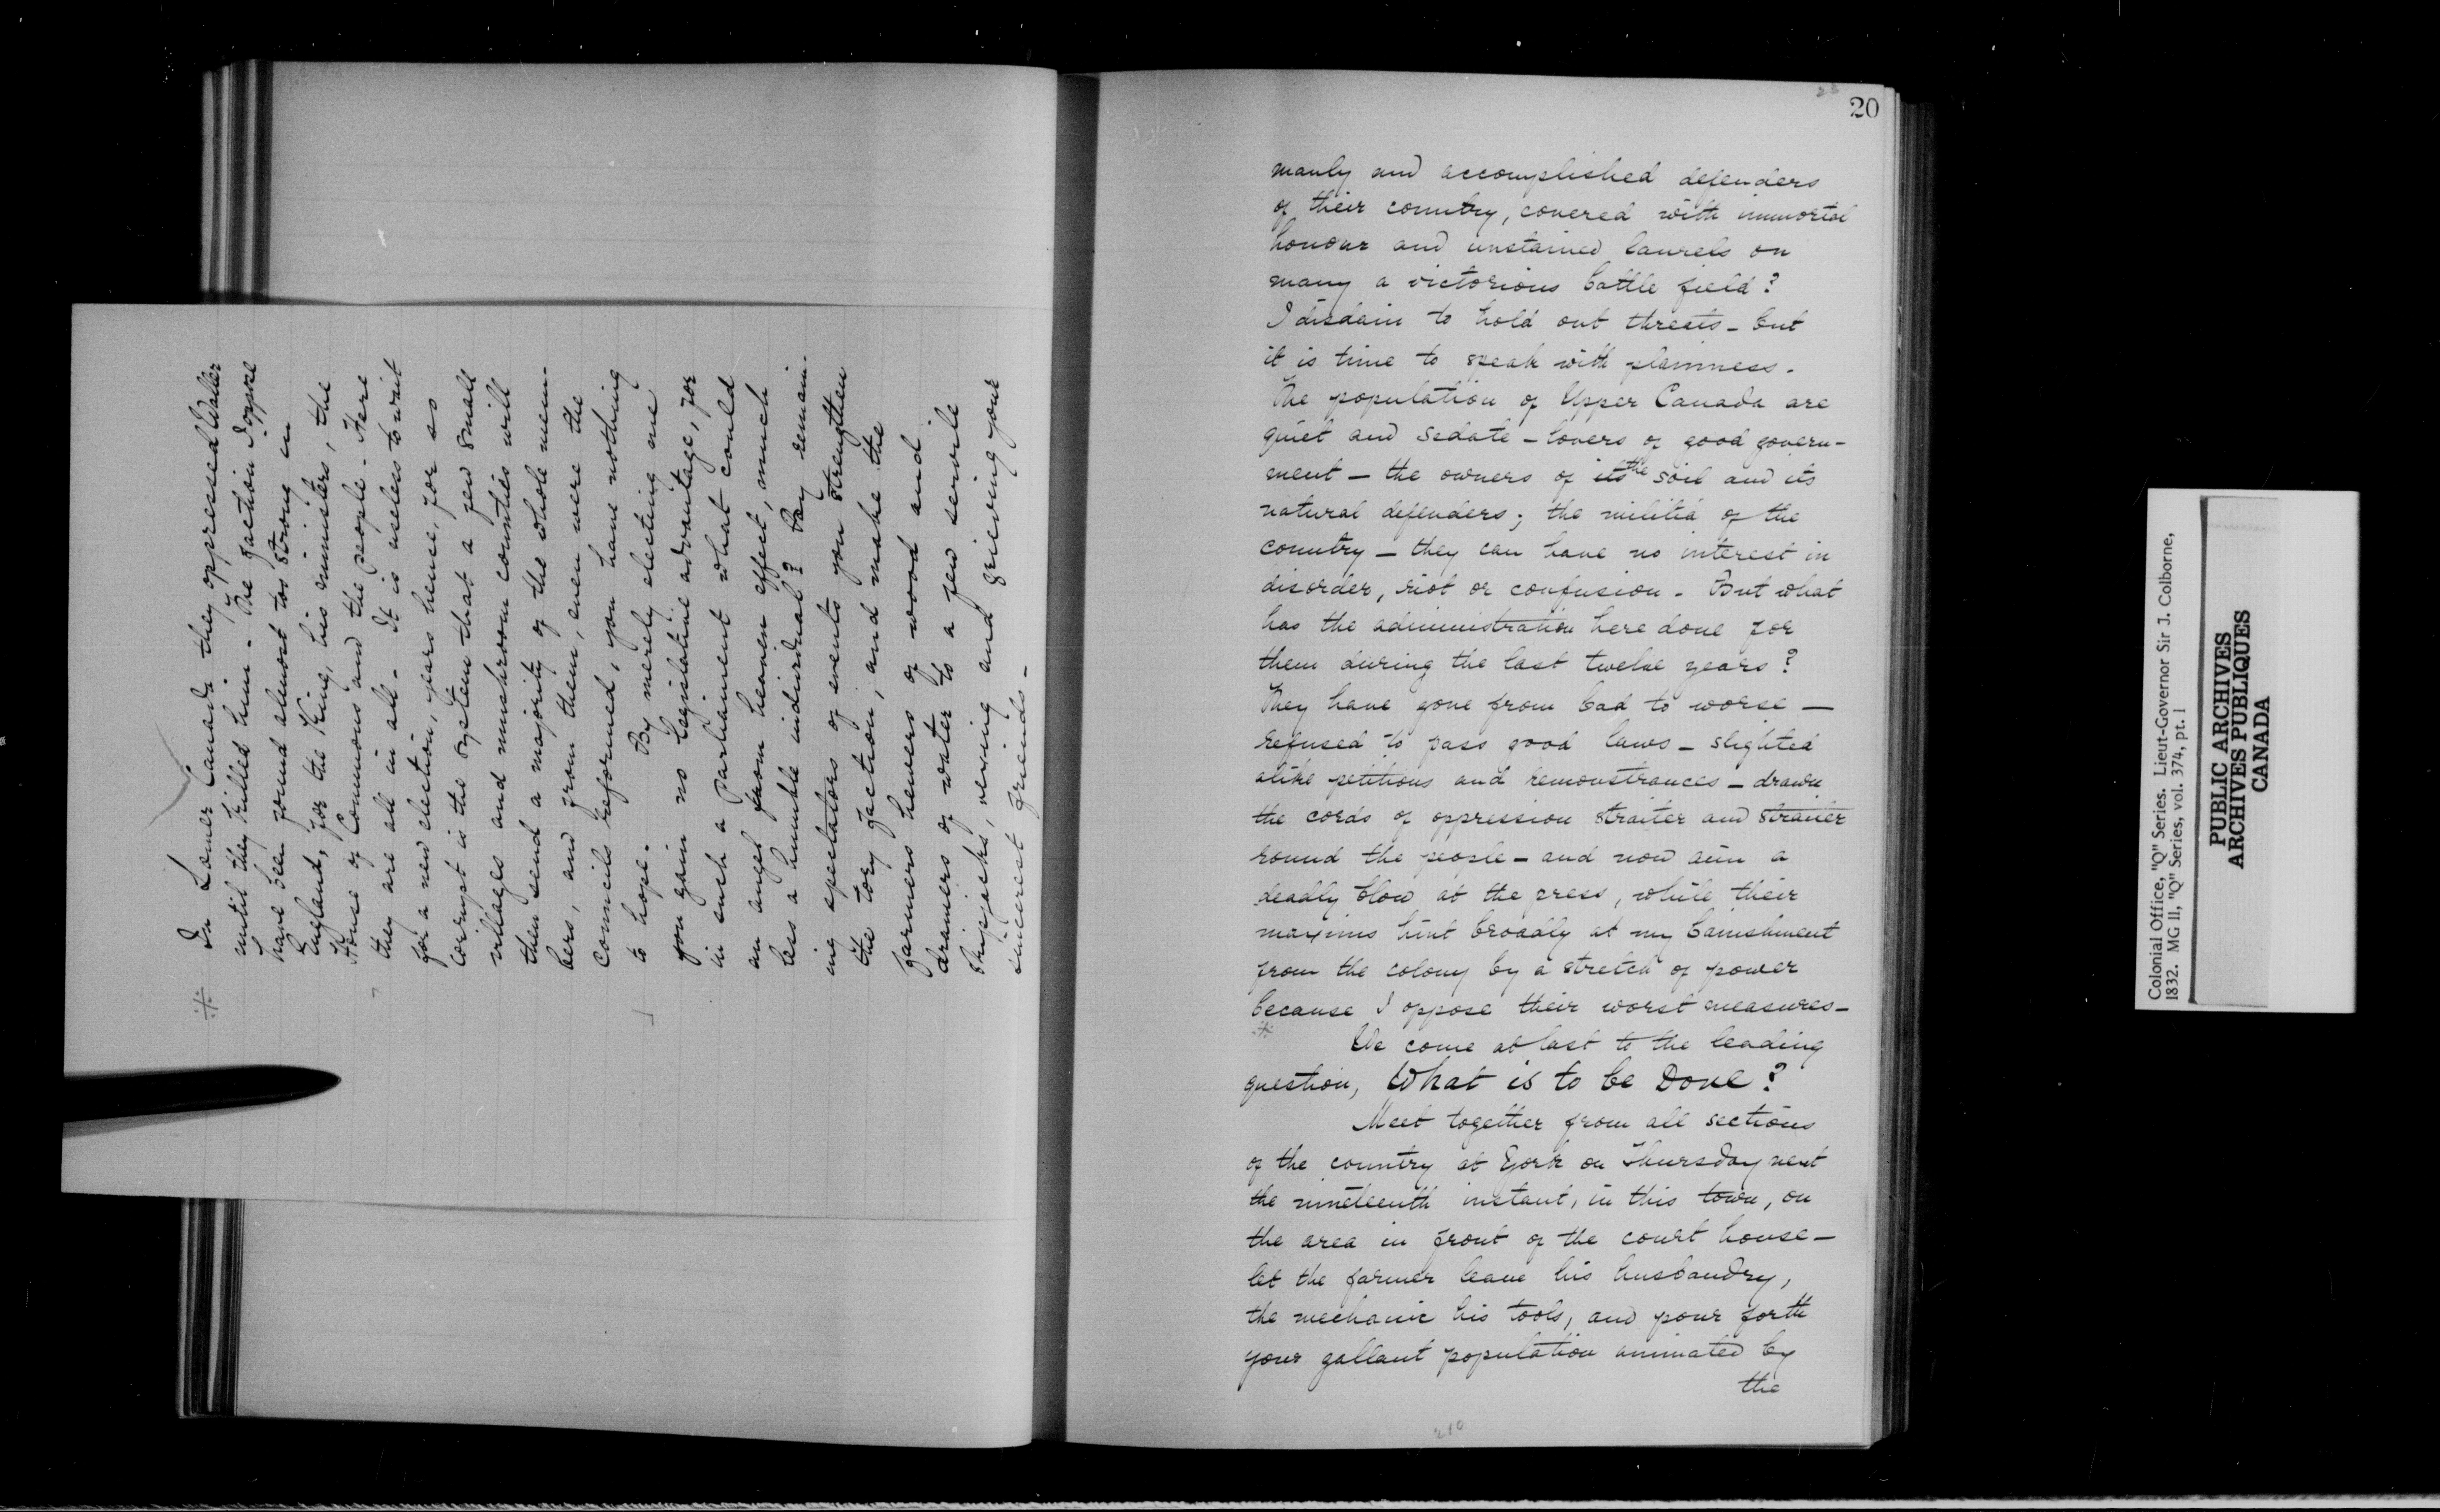 ※ In Lower Canada they oppressed Waller
until they killed him - The faction I oppose
have been found almost too strong in
England, for the King, his ministers, the
House of Commons and the people - Here
they are all in all - It is useless to wait
for a new election, years hence, for so
corrupt is the system that a few small
villages and mushroom counties will
then send a majority of the whole mem-
bers, and from them, even were the
Councils reformed, you have nothing
to hope. By merely electing me
you gain no legislative advantage, for
in such a Parliament what could
an angel from heaven effect, much
less a humble individual? By remain-
ing spectators of events you strengthen
the tory faction, and make the
farmers hewers of wood and
drawers of water to a few servile
skipjacks, vexing and grieving your
sincerest friends -
20
manly and accomplished defenders
of their country, covered with immortal
honour and unstained laurels on
many a victorious battle field?
I disdain to hold out threats - but
it is time to speak with plainness.
The population of Upper Canada are
quiet and sedate - lovers of good govern-
ment - the owners of its the soil and its
natural defenders; the militia of the
country - they can have no interest in
disorder, riot or confusion - But what
has the administration here done for
them during the last twelve years?
They have gone from bad to worse -
refused to pass good laws - slighted
alike petitions and remonstrances - drawn
the cords of oppression straiter and straiter
round the people - and now aim a
deadly blow at the press, while their
maxims hint broadly at my banishment
from the colony by a stretch of power
because I oppose their worst measures -
※ We come at last to the leading
question, What is to be Done?
Meet together from all sections
of the country at York on Thursday next
the nineteenth instant, in this town, on
the area in front of the court house -
let the farmer leave his husbandry,
the mechanic his tools, and pour forth
your gallant population animated by
the
210
Colonial Office, "Q" Series. Lieut-Governor Sir J. Colborne,
1832. MG 11, "Q" Series, vol. 374, pt. 1
PUBLIC ARCHIVES
ARCHIVES PUBLIQUES
CANADA